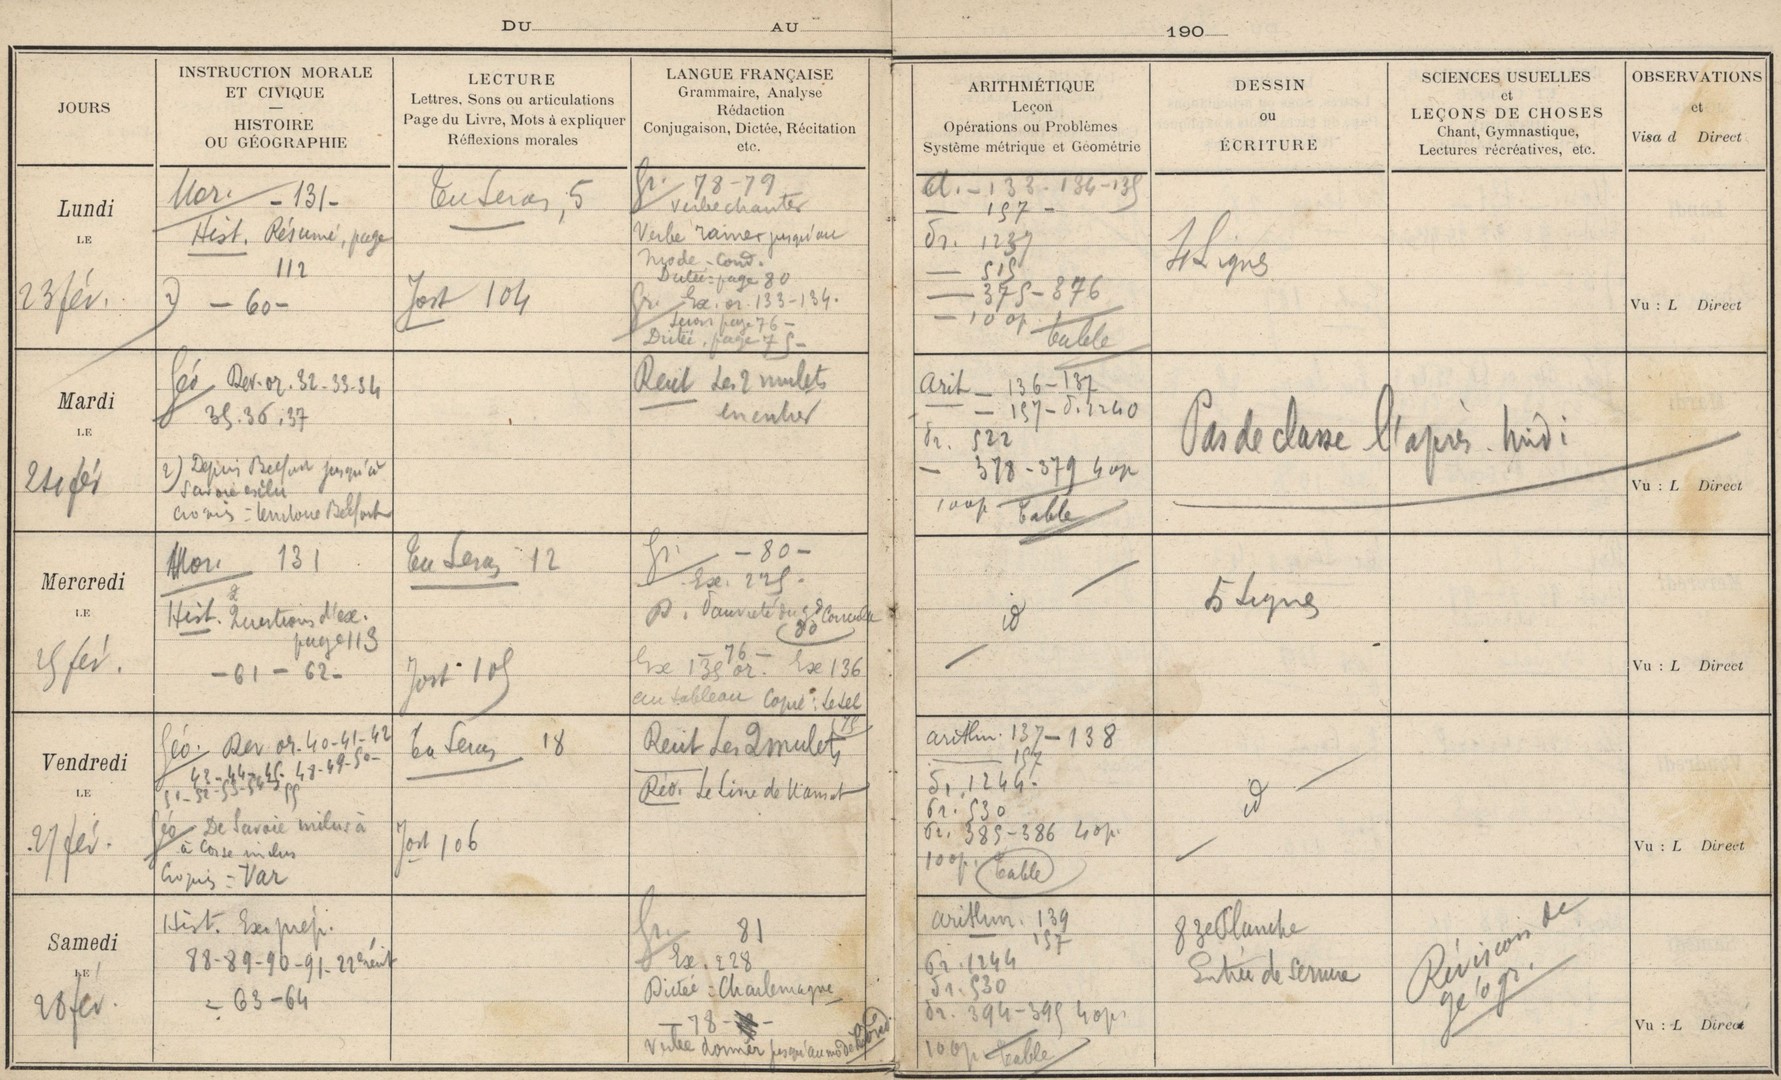 DU AU 190
JOURS
INSTRUCTION MORALE
ET CIVIQUE
—
HISTOIRE
OU GÉOGRAPHIE
LECTURE
Lettres, Sons ou articulations
Page du Livre, Mots à expliquer
Réflexions morales
LANGUE FRANÇAISE
Grammaire, Analyse
Rédaction
Conjugaison, Dictée, Récitation
etc.
ARITHMÉTIQUE
Leçon
Opérations ou Problèmes
Système métrique et Géométrie
DESSIN
ou
ÉCRITURE
SCIENCES USUELLES
et
LEÇONS DE CHOSES
Chant, Gymnastique,
Lectures récréatives, etc.
OBSERVATIONS
et
Visa d Direct
Lundi
LE
23 fév.
Mor. - 131 -
Hist. Résumé, page
112
2) - 60 -
Tu Seras, 5
Jost 104
Gr. 78-79
Verbe chanter
Verbe aimer jusqu'au
mode - Cond.
Dictée = page 80
Gr. Ex. or. 133-134.
page 76 -
Dictée, page 75 -
- 133 - 134 - 135
— 157 -
515
— 375 - 376
— 100 p. Table
4 Lignes
Vu : L Direct
Mardi
LE
24 fév
Géo Dev. or. 32-33-34
35.36.37
2) Depuis Belfort jusqu'à
Savoie
Croquis = Belfort
Récit Les 2 mulets
en entier
Arit — 136-137
— 157 - 1240
522
- 378-379 4 op
100 p Table
Pas de classe l'après-midi
Vu : L Direct
Mercredi
LE
25 fév.
Mor. 131
Hist. Questions d'ex.
page 113
- 61 - 62 -
Tu Seras 12
Jost 105
Gr. - 80 -
Ex. 225.
80
- 76 -
Ex 135 or. Ex 136
au tableau Copie : Le sel
id
5 Lignes
Vu : L Direct
Vendredi
LE
27 fév.
Géo. Dev or. 40-41-42
43-44-45 48-49-50-
51-52-53-54-55
Géo De Savoie inclus à
à Corse inclus
Croquis = Var
Tu Seras 18
Jost 106
75
Récit Les 2 mulets
Réd. Le Livre de
arithm. 137-138
157
1244.
530
385-386 4 op.
100 p. Table
id
Vu : L Direct
Samedi
LE
28 fév.
Hist. Ex. prép.
88-89-90-91-22è récit
= 63-64
Gr. 81
Ex. 228
Dictée = Charlemagne
- 78 -
Verbe donner jusqu'au mode Cond.
arithm. 139
157
1244
530
394-395 4 op.
100 p Table
83e Planche
Entrée de serrure
Révision de
géogr.
Vu : L Direct